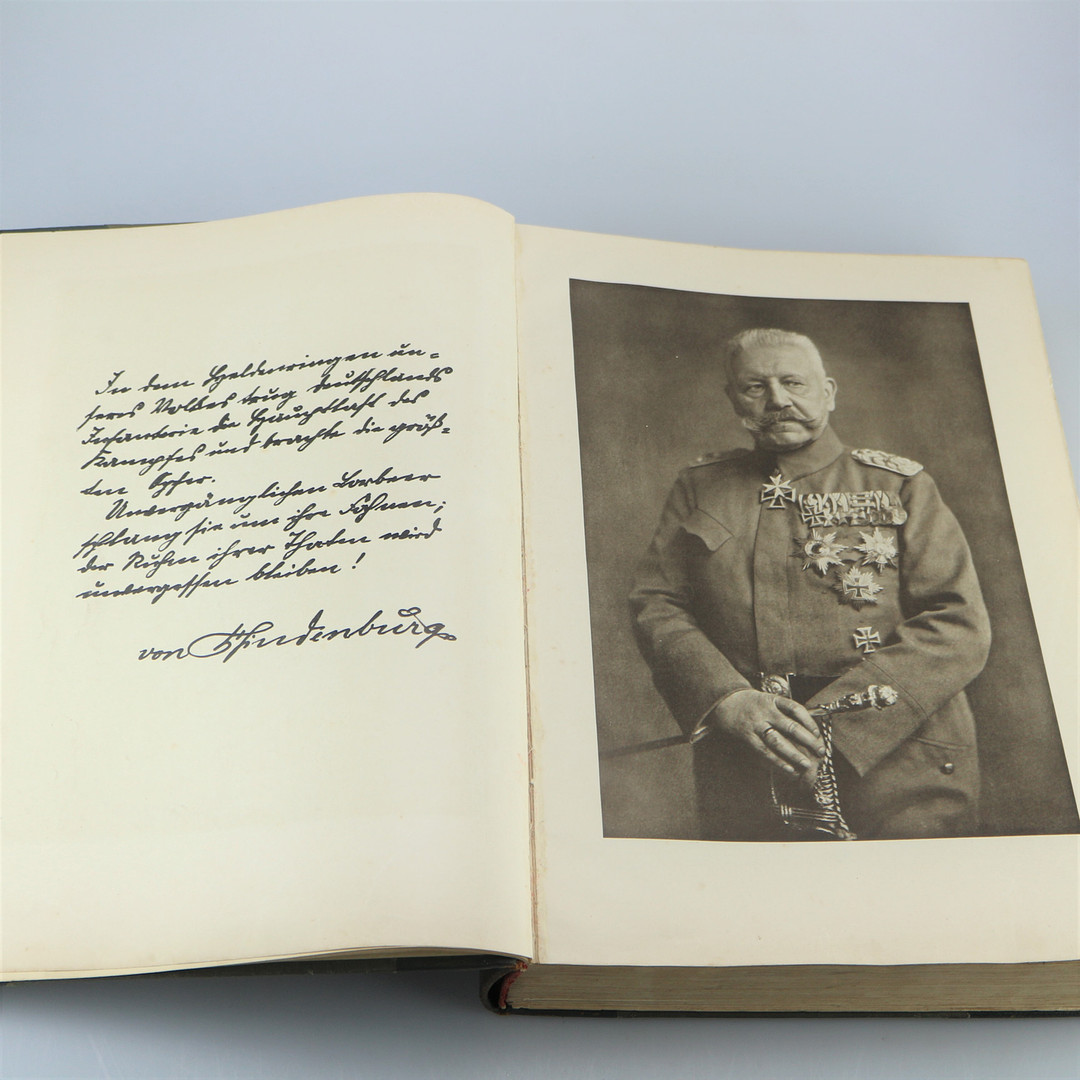 In dem Heldenringen un=
seres Volkes trug Deutschlands
Infanterie die Hauptlast des
Kampfes und brachte die größ=
ten Opfer.
Unvergänglichen Lorbeer
schlang sie um ihre Fahnen;
der Ruhm ihrer Thaten wird
unvergessen bleiben!
von Hindenburg